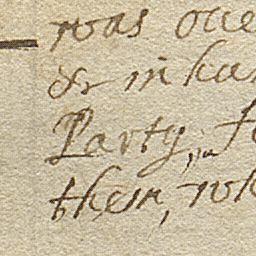 was ove
& in ha
Party, f
them, wh